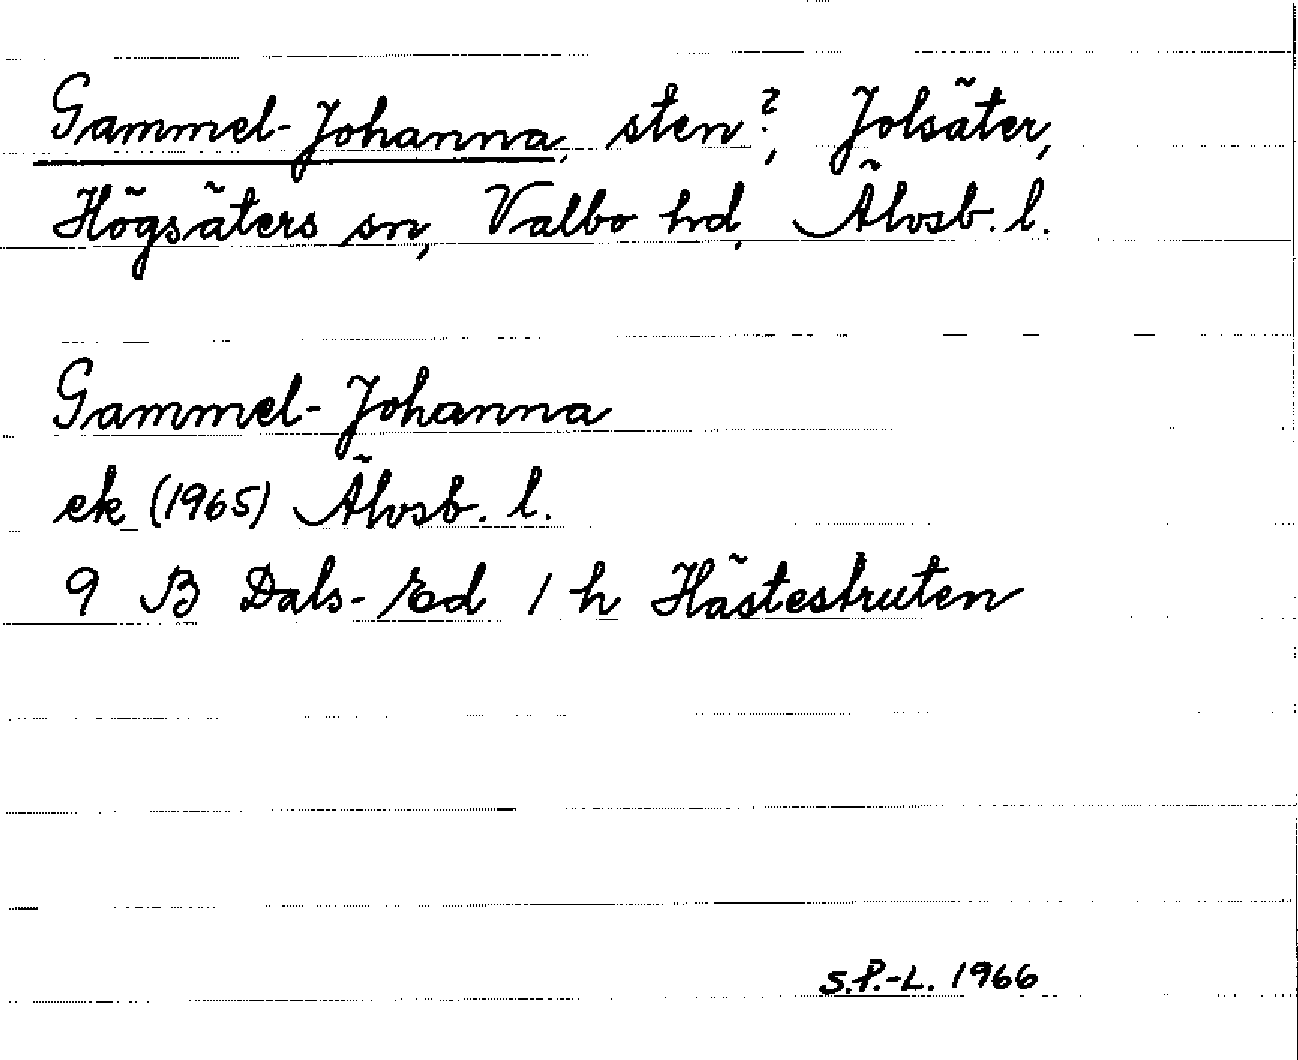 Gammel-Johanna, sten?, Jolsäter,
Högsäters sn, Valbo hd, Älvsb. l.
Gammel-Johanna
ek (1965) Älvsb. l.
9 B Dals-Ed 1 h Hästestruten
S.P.-L. 1966